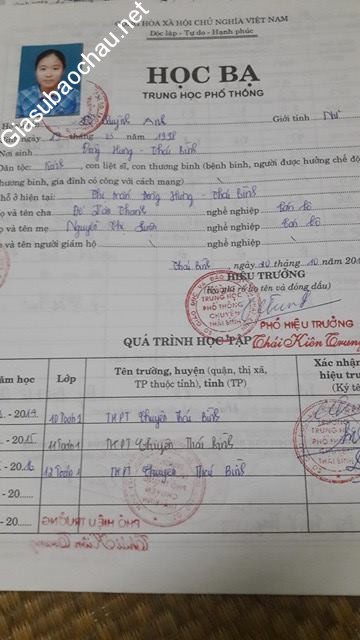 CỘNG HÒA XÃ HỘI CHỦ NGHĨA VIỆT NAM
Độc lập - Tự do - Hạnh phúc
Giasubaochau.net
HỌC BẠ
TRUNG HỌC PHỔ THÔNG
Quỳnh Anh Giới tính Nữ
ngày năm 1998
Nơi sinh Đông Hưng - Thái Bình
Dân tộc: Kinh, con liệt sĩ, con thương binh (bệnh binh, người được hưởng chế độ
thương binh, gia đình có công với cách mạng)
Chỗ ở hiện tại: Thị trấn Đông Hưng - Thái Bình
Họ và tên cha nghề nghiệp Cán bộ
Họ và tên mẹ Nguyễn Thị nghề nghiệp Cán bộ
Họ và tên người giám hộ \ nghề nghiệp \
Thái Bình, ngày tháng 10 năm 20
HIỆU TRƯỞNG
(Ký, ghi rõ họ tên và đóng dấu)
TRUNG HỌC
PHỔ THÔNG
CHUYÊN
THÁI BÌNH
PHÓ HIỆU TRƯỞNG
Thái Kiên Trung
QUÁ TRÌNH HỌC TẬP
Năm học Lớp Tên trường, huyện (quận, thị xã, TP thuộc tỉnh), tỉnh (TP) Xác nhận hiệu trưởng (Ký tên
- 2014 10 Toán 1 THPT Chuyên Thái Bình
- 2015 11 Toán 1 THPT Chuyên Thái Bình
- 2016 12 Toán 1 THPT Chuyên Thái Bình
- 20.....
- 20.....
PHÓ HIỆU TRƯỞNG
Thái Kiên Trung